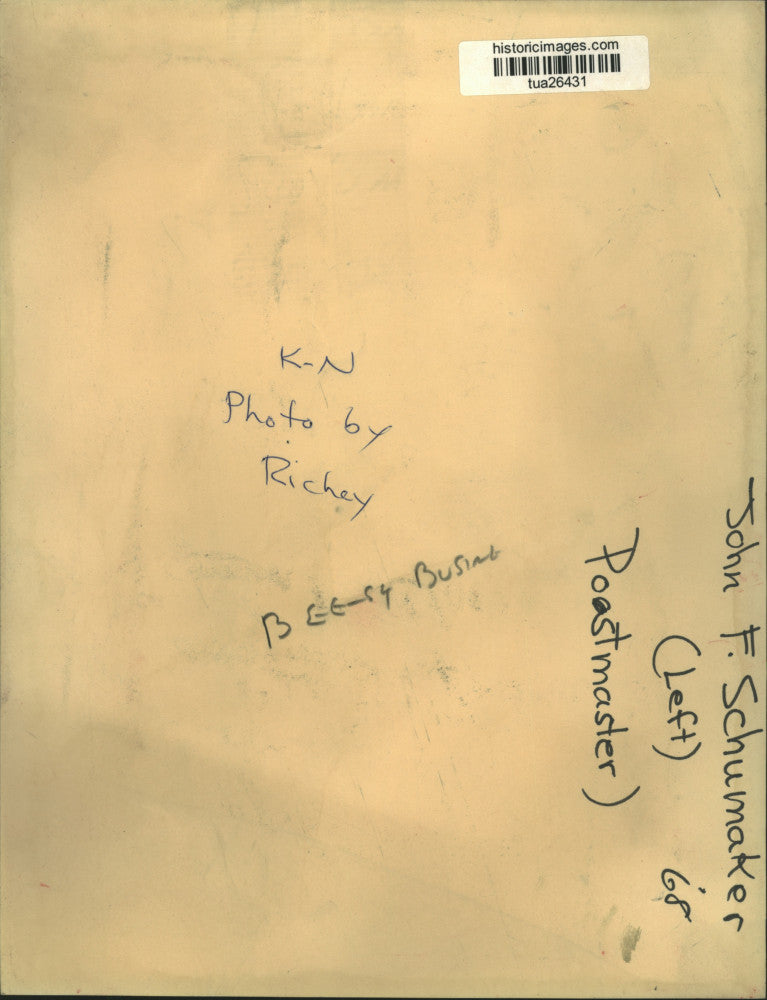 historicimages.com
tua26431
K-N
Photo by
Richey
BEE-SY BUSINE
John F. Schumaker
(Left)
Poastmaster)
'68